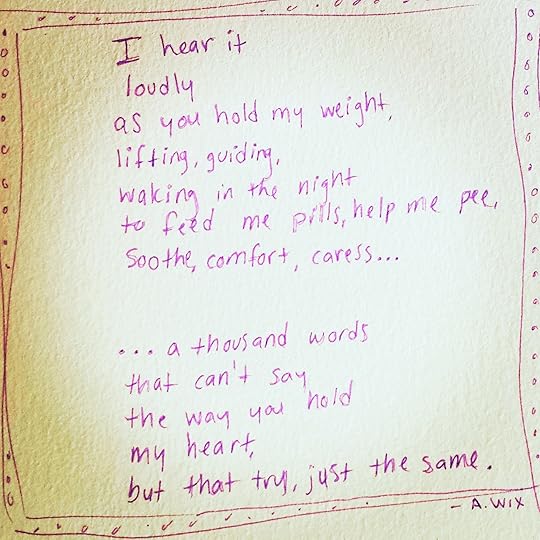 I hear it
loudly
as you hold my weight,
lifting, guiding,
waking in the night
to feed me pills, help me pee,
soothe, comfort, caress...
... a thousand words
that can't say
the way you hold
my heart,
but that try, just the same.
- A. WIX